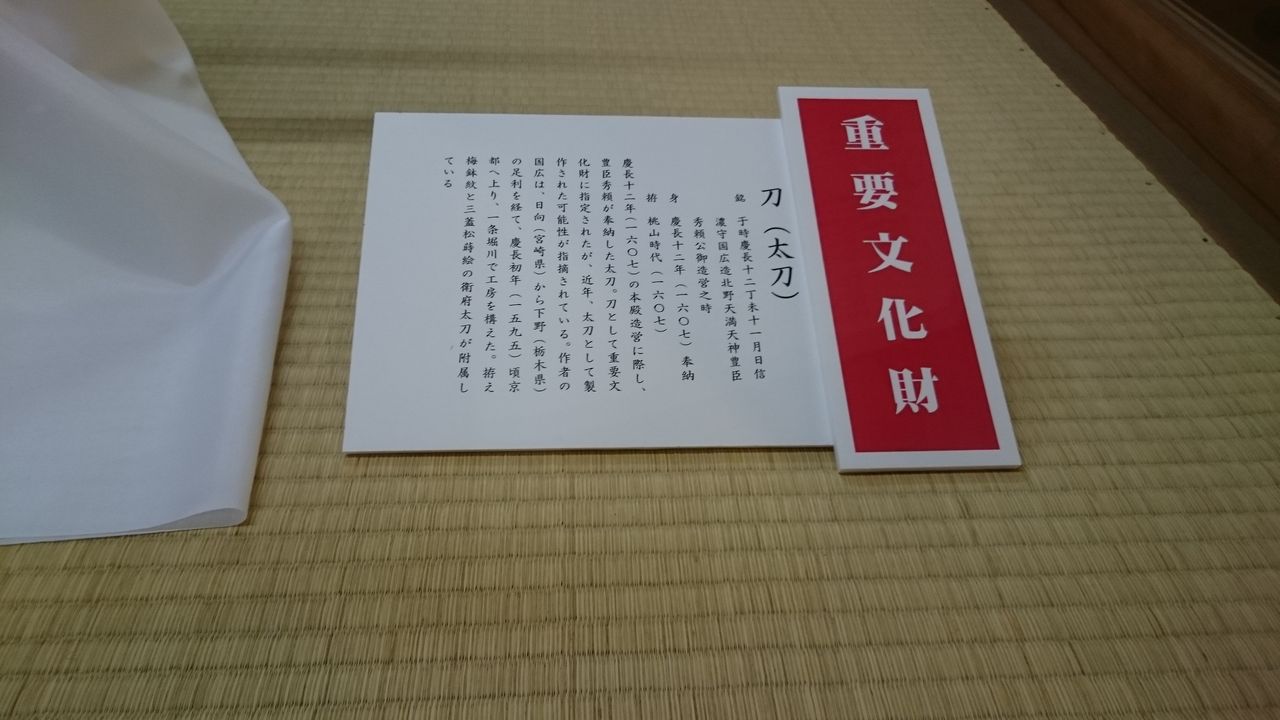 重要文化財
刀（太刀）
銘　于時慶長十二丁未十一月日信
濃守国広造北野天満天神豊臣
秀頼公御造営之時
身　慶長十二年（一六〇七）奉納
拵　桃山時代（一六〇七）
慶長十二年（一六〇七）の本殿造営に際し、
豊臣秀頼が奉納した太刀。刀として重要文
化財に指定されたが、近年、太刀として製
作された可能性が指摘されている。作者の
国広は、日向（宮崎県）から下野（栃木県）
の足利を経て、慶長初年（一五九五）頃京
都へ上り、一条堀川で工房を構えた。拵え
梅鉢紋と三蓋松蒔絵の衛府太刀が附属し
ている